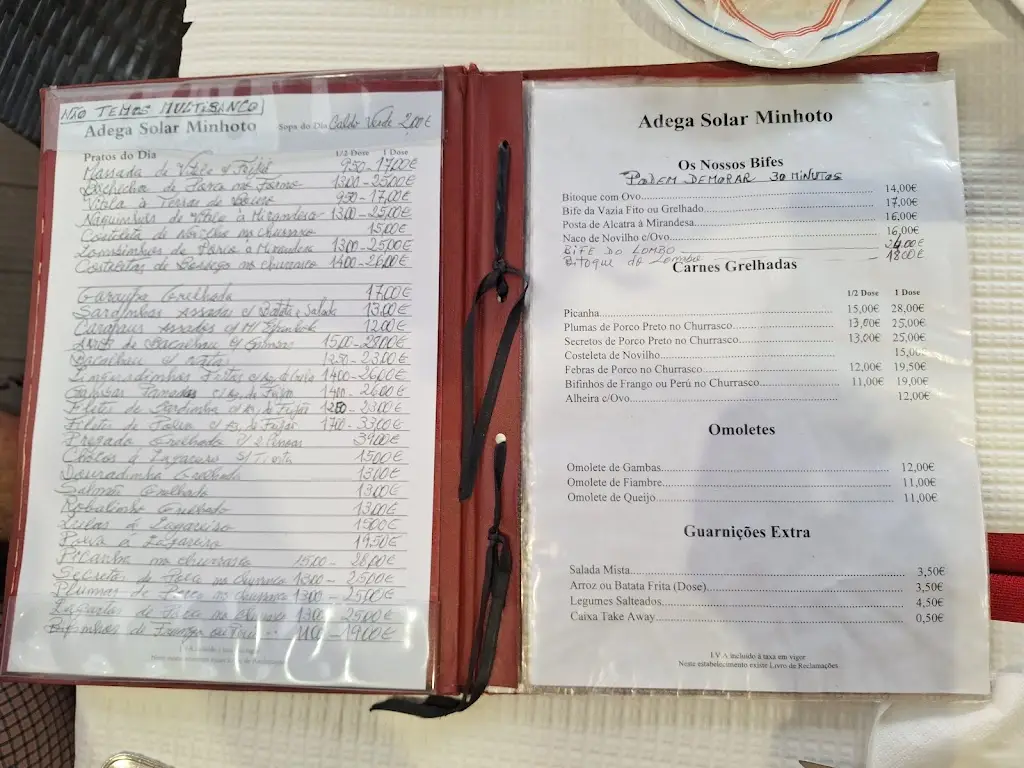 NÃO TEMOS MULTIBANCO
Adega Solar Minhoto Sopa do Dia Caldo Verde 2,00€
Pratos do Dia 1/2 Dose 1 Dose
Massada de Vitela c/ Feijão 9,50-17,00€
de Porco no Forno 13,00-25,00€
Vitela à Terras de 9,50-17,00€
Naquinhos de Vitela à Mirandesa 13,00-25,00€
Costeleta de Novilho no churrasco 15,00€
Lombinhos de Porco à Mirandesa 13,00-25,00€
Costeletas de Borrego no churrasco 14,00-26,00€
Garoupa Grelhada 17,00€
Sardinhas Assadas c/ Batata e Salada 13,00€
Carapaus Assados c/ M/ 12,00€
de Bacalhau c/ 15,00-25,00€
Bacalhau c/ Natas 12,50-23,00€
Fritos c/ 14,00-26,00€
Gambas Panadas c/ de Feijão 14,00-26,00€
Filetes de Sardinha c/ de Feijão 12,50-23,00€
Filetes de c/ de Feijão 17,00-33,00€
Pregado Grelhado p/ 2 Pessoas 39,00€
Chocos à Lagareiro s/ Tinta 15,00€
Douradinha Grelhada 13,00€
Salmão Grelhado 13,00€
Robalinho Grelhado 13,00€
Lulas à Lagareiro 15,00€
à Lagareiro 19,50€
Picanha no churrasco 15,00-28,00€
Secretos de Porco no churrasco 13,00-25,00€
Plumas de Porco no churrasco 13,00-25,00€
Lagartos de Porco no churrasco 13,00-25,00€
Bifinhos de Frango ou Peru 11,00-19,00€
I.V.A incluido à taxa em vigor
Neste estabelecimento existe Livro de Reclamações
Adega Solar Minhoto
Os Nossos Bifes
PODEM DEMORAR 30 MINUTOS
Bitoque com Ovo 14,00€
Bife da Vazia Fito ou Grelhado 17,00€
Posta de Alcatra à Mirandesa 16,00€
Naco de Novilho c/Ovo 16,00€
BIFE DO LOMBO 24,00€
Bitoque do Lombo 18,00€
Carnes Grelhadas
1/2 Dose 1 Dose
Picanha 15,00€ 28,00€
Plumas de Porco Preto no Churrasco 13,00€ 25,00€
Secretos de Porco Preto no Churrasco 13,00€ 25,00€
Costeleta de Novilho 15,00€
Febras de Porco no Churrasco 12,00€ 19,50€
Bifinhos de Frango ou Perú no Churrasco 11,00€ 19,00€
Alheira c/Ovo 12,00€
Omoletes
Omolete de Gambas 12,00€
Omolete de Fiambre 11,00€
Omolete de Queijo 11,00€
Guarnições Extra
Salada Mista 3,50€
Arroz ou Batata Frita (Dose) 3,50€
Legumes Salteados 4,50€
Caixa Take Away 0,50€
I.V.A incluido à taxa em vigor
Neste estabelecimento existe Livro de Reclamações